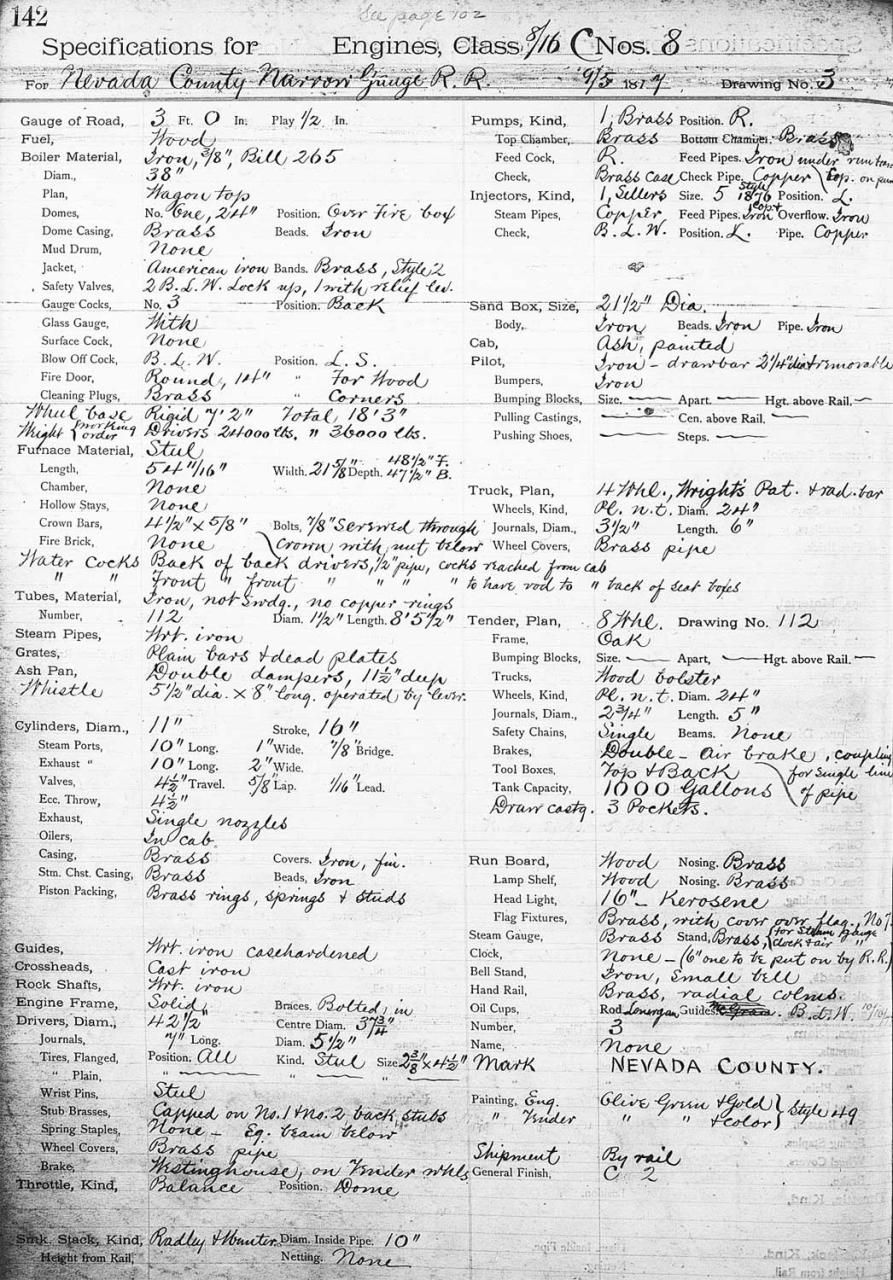 142
See page 102
Specifications for Engines, Class 8/16 C Nos. 8
For Nevada County Narrow Gauge R. R. 9/5 187 Drawing No. 3
Gauge of Road, 3 Ft. 0 In. Play 1/2 In.
Fuel, Wood
Boiler Material, Iron, 3/8", Bill 265
Diam., 38"
Plan, Wagon top
Domes, No. One, 24" Position. Over Fire box
Dome Casing, Brass Beads. Iron
Mud Drum, None
Jacket, American iron Bands. Brass, Style 2
Safety Valves, 2 B. L. W. Lock up, 1 with relief lev.
Gauge Cocks, No. 3 Position. Back
Glass Gauge, With
Surface Cock, None
Blow Off Cock, B. L. W. Position. L. S.
Fire Door, Round, 14" " For Wood
Cleaning Plugs, Brass " Corners
Wheel base Rigid 7' 2" Total 18' 3"
Weight { working order Drivers 24000 lbs. " 36000 lbs.
Furnace Material, Steel
Length, 54 11/16" Width. 21 5/8" Depth. 48 1/2" F. 47 1/2" B.
Chamber, None
Hollow Stays, None
Crown Bars, 4 1/2" x 5/8" Bolts, 7/8" Screwed through
Fire Brick, None Crown with nut below
Water Cocks Back of back drivers, 1/2" pipe, cocks reached from cab
" " Front " front " " " " to have rod to " back of seat boxes
Tubes, Material, Iron, not Swdg., no copper rings
Number, 112 Diam. 1 1/2" Length. 8' 5 1/2"
Steam Pipes, Wrt. iron
Grates, Plain bars & dead plates
Ash Pan, Double dampers, 11 1/2" deep
Whistle 5 1/2" dia. x 8" long. operated by lever.
Cylinders, Diam., 11" Stroke, 16"
Steam Ports, 10" Long. 1" Wide. 7/8" Bridge.
Exhaust " 10" Long. 2" Wide.
Valves, 4 1/2" Travel. 5/8" Lap. 1/16" Lead.
Ecc. Throw, 4 1/2"
Exhaust, Single nozzles
Oilers, In cab
Casing, Brass Covers. Iron, fin.
Stm. Chst. Casing, Brass Beads, Iron
Piston Packing, Brass rings, springs & studs
Guides, Wrt. iron casehardened
Crossheads, Cast iron
Rock Shafts, Wrt. iron
Engine Frame, Solid Braces. Bolted in
Drivers, Diam., 42 1/2" Centre Diam. 37 3/4"
Journals, 7" Long. Diam. 5 1/2"
Tires, Flanged, Position. All Kind. Steel Size 2 3/8" x 4 1/2"
" Plain, "
Wrist Pins, Steel
Stub Brasses, Capped on No. 1 & No. 2 back stubs
Spring Staples, None - Eq. beam below
Wheel Covers, Brass pipe
Brake, Westinghouse, on Tender whels
Throttle, Kind, Balance Position. Dome
Smk. Stack, Kind, Radley & Hunter Diam. Inside Pipe. 10"
Height from Rail, Netting. None
Pumps, Kind, 1, Brass Position. R.
Top Chamber, Brass Bottom Chamber. Brass
Feed Cock, R. Feed Pipes. Iron under run
Check, Brass Case Check Pipe. Copper Cop. on
Injectors, Kind, 1, Sellers Size. 5 Style 1876 Position. L.
Steam Pipes, Copper Feed Pipes. Iron Overflow. Iron
Check, B. L. W. Position. L. Pipe. Copper
Sand Box, Size, 21 1/2" Dia.
Body, Iron Beads. Iron Pipe. Iron
Cab, Ash, painted
Pilot, Iron - drawbar 2 1/4" dia & removable
Bumpers, Iron
Bumping Blocks, Size. Apart. Hgt. above Rail.
Pulling Castings, Cen. above Rail.
Pushing Shoes, Steps.
Truck, Plan, 4 Whl., Wright's Pat. & rad. bar
Wheels, Kind, Pl. n. t. Diam. 24"
Journals, Diam., 3 1/2" Length. 6"
Wheel Covers, Brass pipe
Tender, Plan, 8 Whl. Drawing No. 112
Frame, Oak
Bumping Blocks, Size. Apart, Hgt. above Rail.
Trucks, Wood bolster
Wheels, Kind, Pl. n. t. Diam. 24"
Journals, Diam., 2 3/4" Length. 5"
Safety Chains, Single Beams. None
Brakes, Double - air brake, coupling
Tool Boxes, Top & Back for single line
Tank Capacity, 1000 Gallons of pipe
Draw castg. 3 Pockets.
Run Board, Wood Nosing. Brass
Lamp Shelf, Wood Nosing. Brass
Head Light, 16" - Kerosene
Flag Fixtures, Brass, with cover over flag, No 7.
Steam Gauge, Brass Stand, Brass, { for Steam Gauge Clock & air "
Clock, None - (6" one to be put on by R. R.)
Bell Stand, Iron, Small bell
Hand Rail, Brass, radial colms
Oil Cups, Rod Lonergan Guides B. L. W.
Number, 3
Name, None
Mark NEVADA COUNTY.
Painting, Eng. Olive Green & Gold } Style 49
" Tender " " & color
Shipment By rail
General Finish, C 2